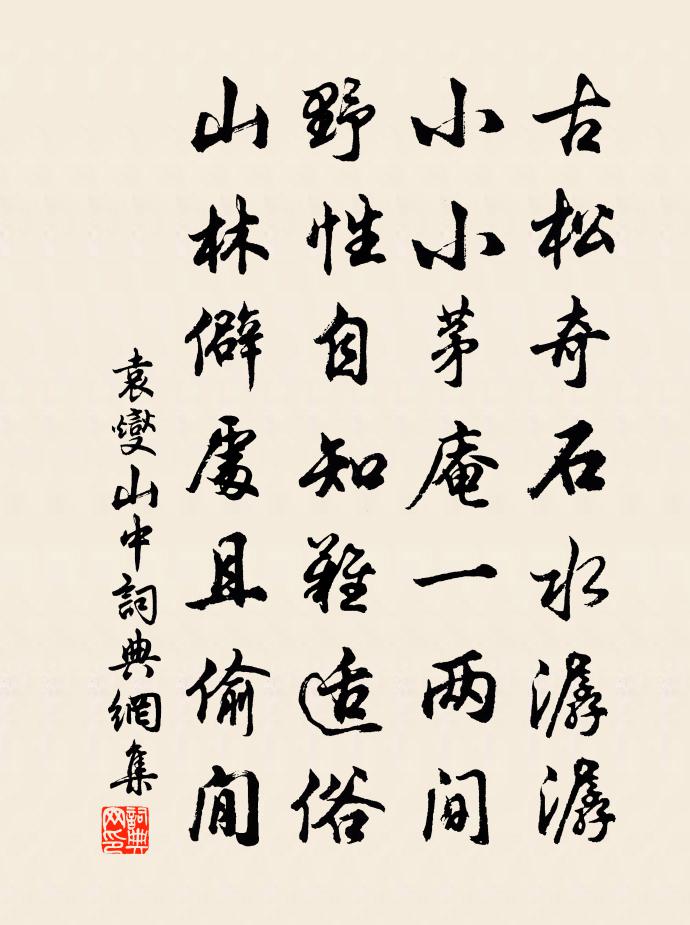 古松奇石水潺潺
小小茅庵一两间
野性自知難适俗
山林僻處且偷閒
袁燮山中詞典網集
詞典
网印